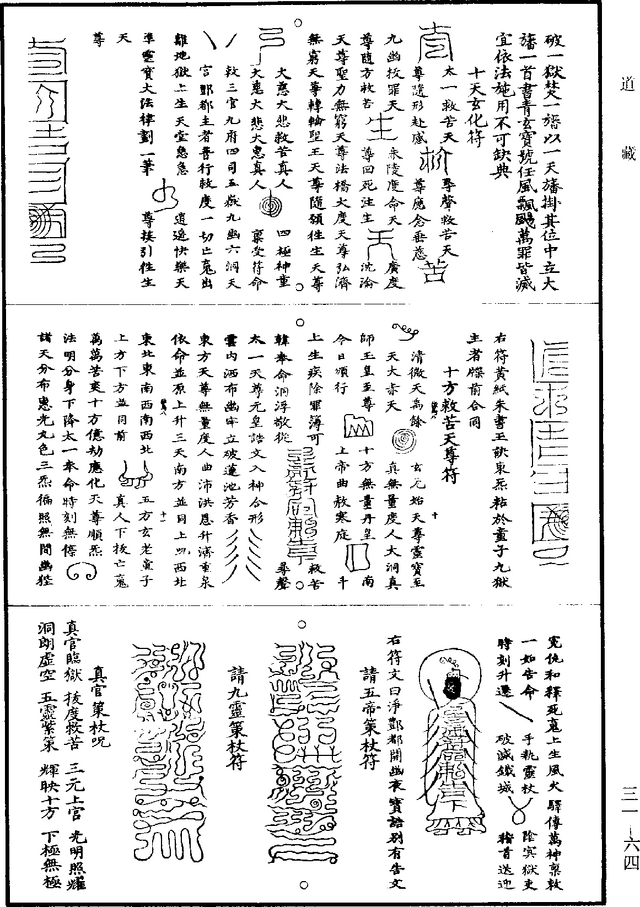 道藏
破一獄焚一旛以一天旛掛其位中立大
旛一首書青玄寶號任風飄颺萬罪皆滅
宜依法施用不可缺典
十天玄化符
太一救苦天 尊聲救苦天
尊隨形赴感 尊慶念垂慈 苦
九幽拔罪天 朱陵度命天 廣度
尊隨方救苦 生 尊回死注生 天 沈淪
天尊聖力無窮天尊法橋大度天尊弘濟
無窮天尊轉輪聖王天尊隨願往生天尊
大慈大悲救苦真人 四極神童
大慈大悲大惠真人 稟受符命
敕三官九府四司五嶽九幽六洞天
宮酆都主者普行赦度一切亡魂出
離地獄上生天堂急急 逍遥快樂天
準靈寶大法律劃一筆 尊接引往生
天
尊
右符黃紙朱書玉訣東炁粘於童子九獄
主者牒前合同
十方救苦天尊符
清微天禹餘 玄元始天尊靈寶至
天大赤天 真無量度人大洞真
師玉皇至尊 十方無量丹皇 南
今日頒行 上帝曲赦寒庭 斗
上生疾除罪簿可 救苦
韓奉命洞浮敬從 尋聲
太一天尊元皇誥文入神合形
雲内洒布幽牢立破蓮池芳香
東方天尊無量度人曲沛洪恩升濟重泉
依命並原上升三天南方並同上西北
東北東南西南西北 五方玄老童子
上方下方並同前 真人下拔亡魂
萬萬苦爽十方億劫應化天尊順炁
法明分身下降太一奉命時刻無停
諸天分布惠光九色三炁徧照無間幽壑
冤仇和釋死魂上生風火 驛傳萬神稟敕
一如告命 手執靈杖 陰冥獄吏
時刻升遷 破滅鐵城 稽首送迎
右符文曰淨酆都開幽夜寶誥别有告文
請五帝策杖符
請九靈策杖符
真官策杖呪
真官臨獄 拔度救苦 三元上官 光明照耀
洞朗虛空 五靈紫策 輝映十方 下極無極
三一-六四